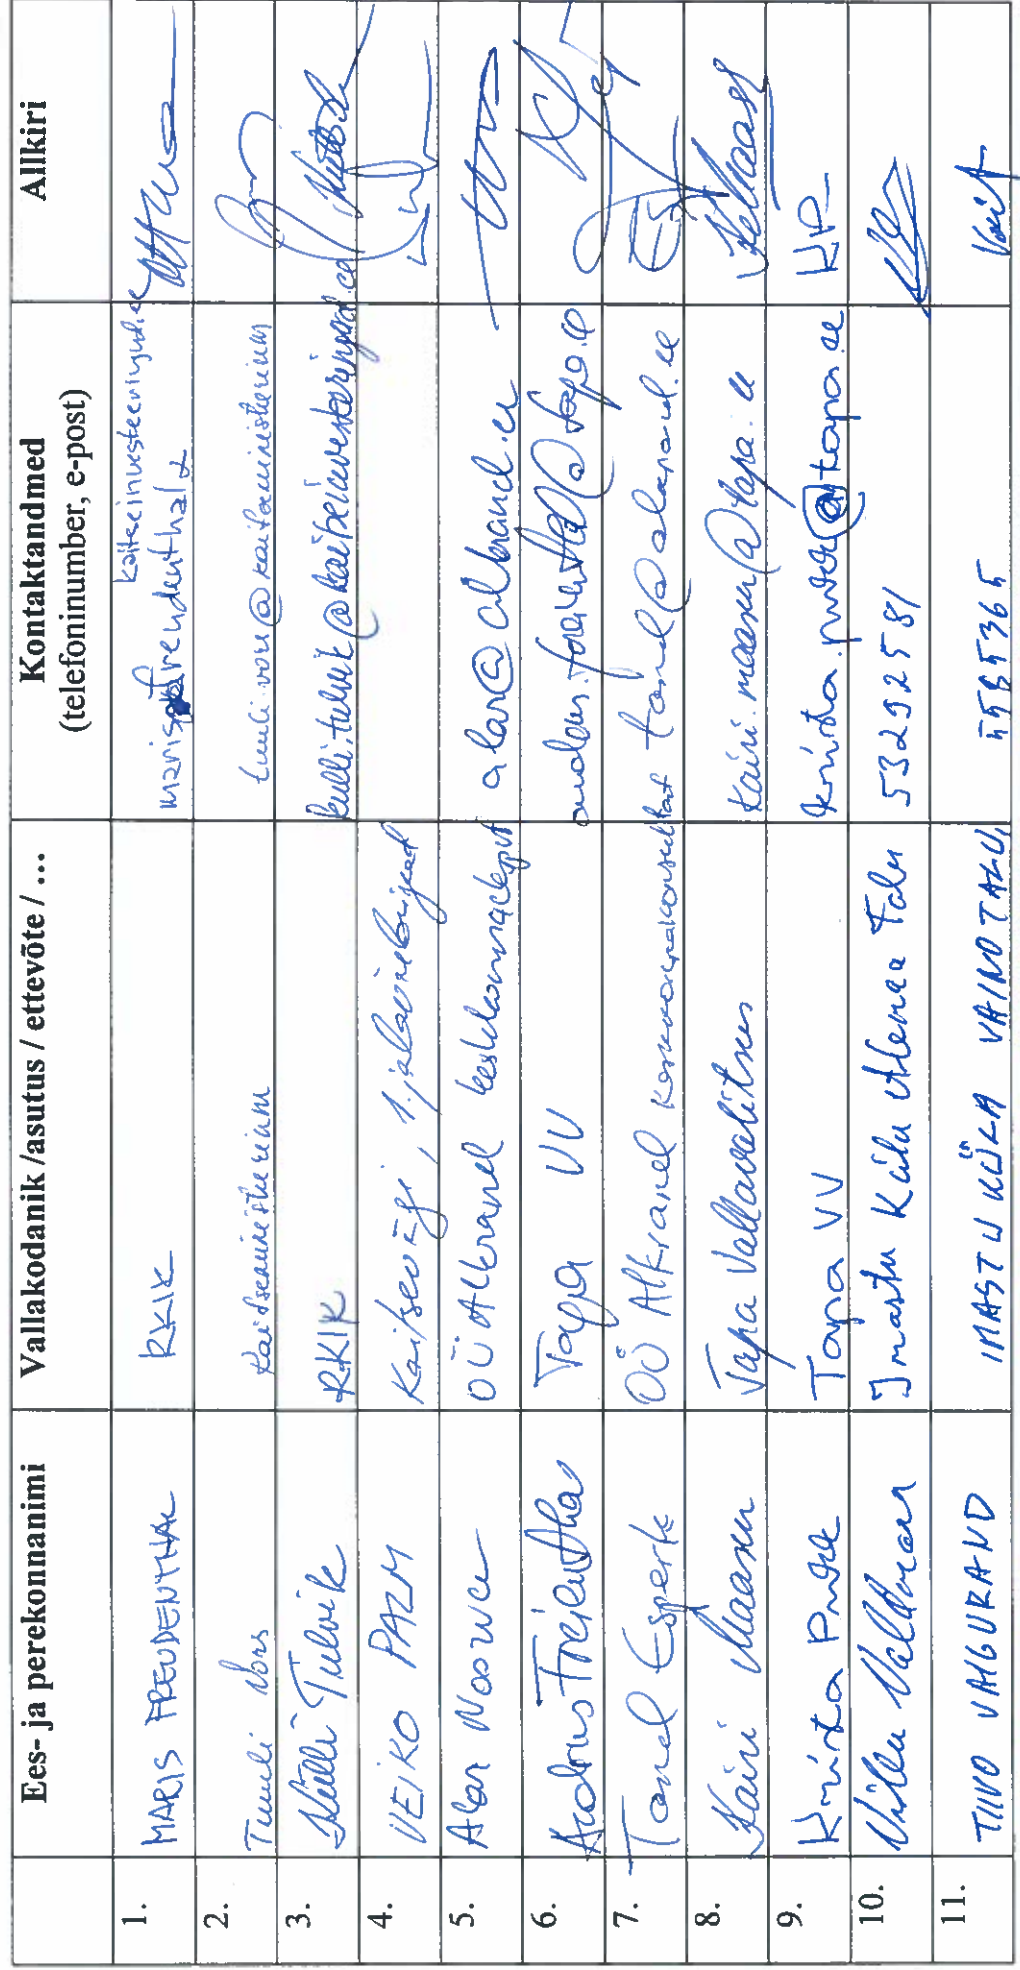 Ees- ja perekonnanimi Vallakodanik /asutus / ettevõte / ... Kontaktandmed Allkiri
(telefoninumber, e-post)
1. MARIS FREUDENTHAL RKIK maris.freudenthal@ kaitseinvesteeringud.ee
2. Tuuli Vors Kaitseministeerium tuuli.vors@kaitseministeerium
3. Külli Tulvik RKIK kulli.tulvik@kaitseinvesteeringud.ee
4. VEIKO PALM Kaitsevägi, 1. jalaväebrigaad
5. Alar Noorvee OÜ Alkranel keskkonnaekspert alar@alkranel.ee
6. Andrus Freienthal Tapa VV andrus.freienthal@tapa.ee
7. Tanel Esperk OÜ Alkranel keskkonnakonsultant tanel@alkranel.ee
8. Kairi Maasen Tapa Vallavalitsus kairi.maasen@tapa.ee
9. Krista Pukk Tapa VV krista.pukk@tapa.ee KP
10. Imastu Küla Talu 53292581
11. TIIVO VAIGURAND IMASTU KÜLA VAINO TALU 5565365